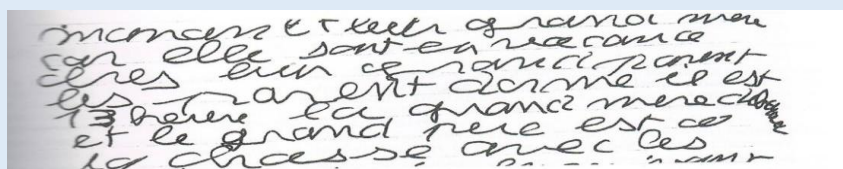 maman et leur grand mere
car elle sont en vacance
cheres leur grand parent
les parent dorme il est
13 heure la grand mere
et le grand pere est a
la chasse avec les